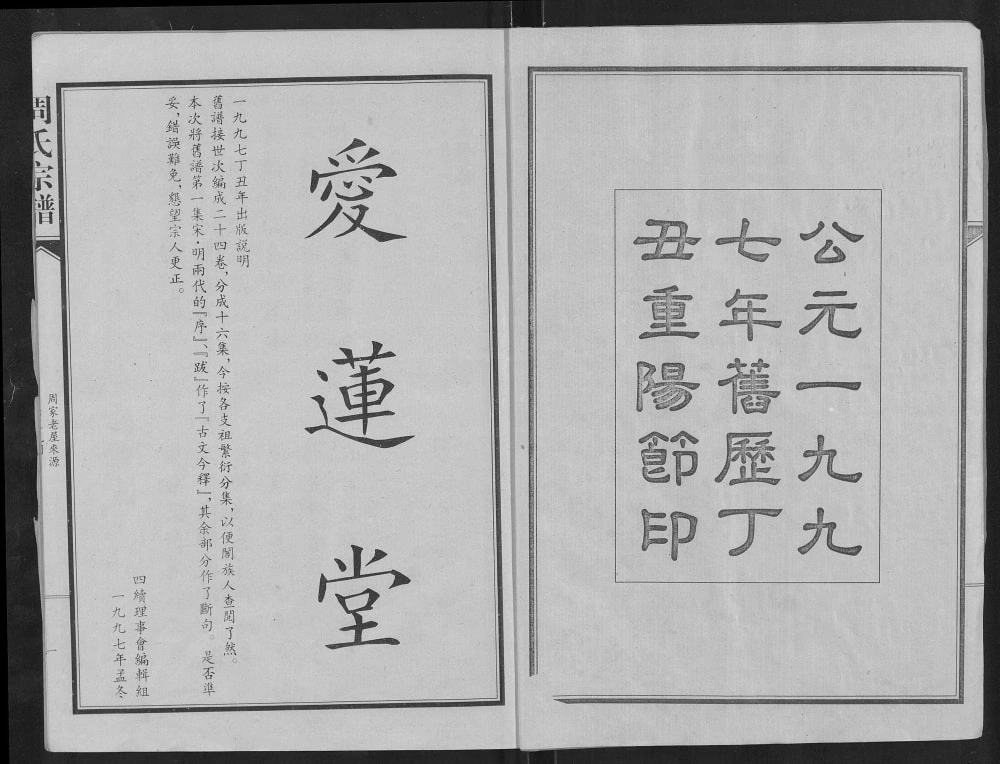 公元一九九
七年舊歷丁
丑重陽節印
愛蓮堂
一九九七丁丑年出版説明
舊譜接世次編成二十四卷，分成十六集，今按各支祖繁衍分集，以便閤族人查閲了然。
本次將舊譜第一集宋·明兩代的『序』、『跋』作了『古文今釋』，其余部分作了斷句。是否準
妥，錯誤難免，懇望宗人更正。
四續理事會編輯組
一九九七年孟冬
周氏宗譜
周家老屋來源
一